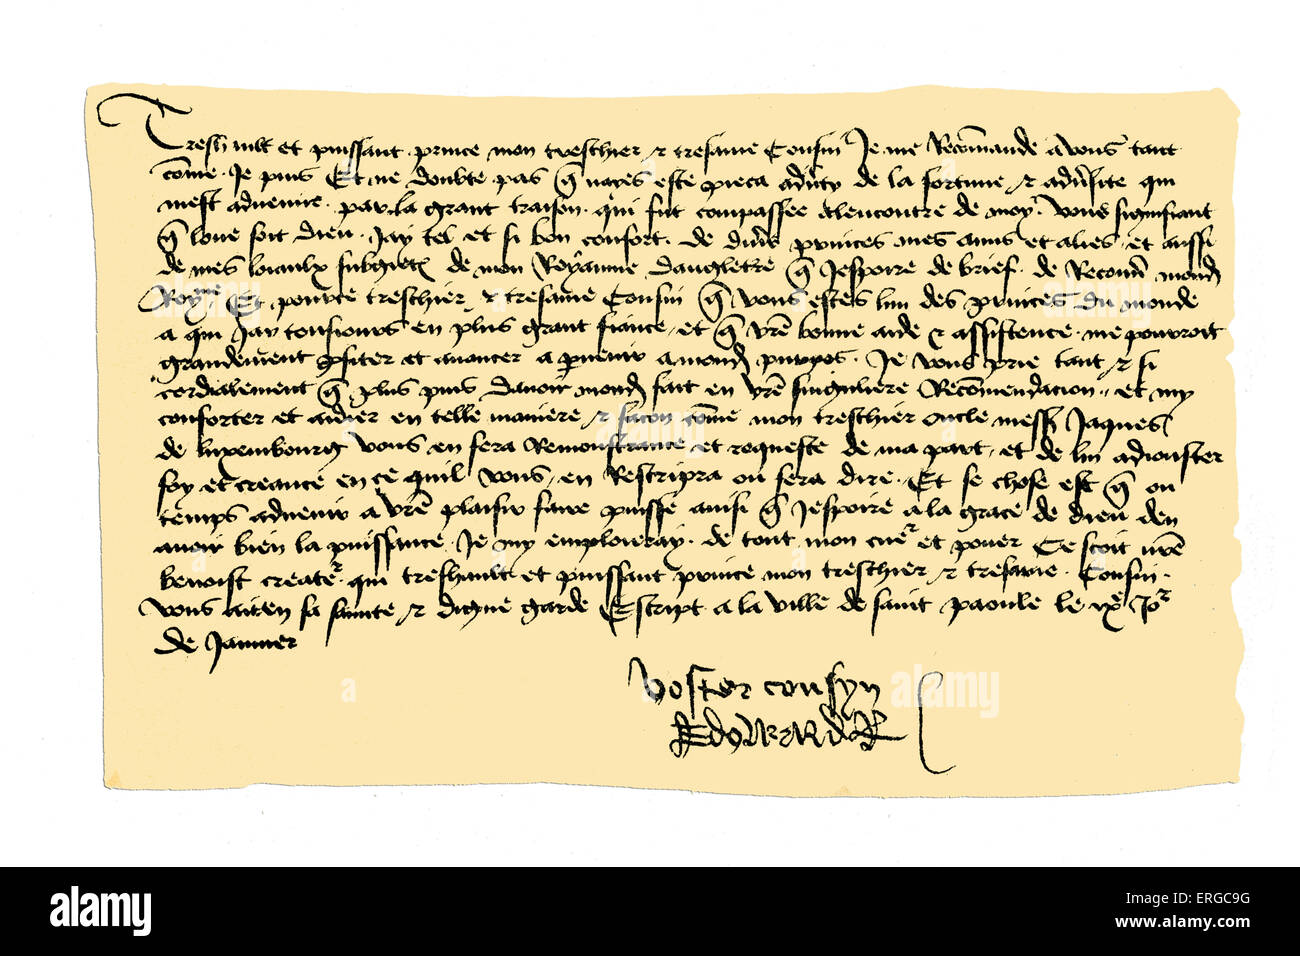 Treshault et puissant prince mon treschier & tresame Cousin Je me Recōmande a vous tant
cōme Je puis Et ne doubte pas q̄ nayes este pieca adūty de la fortune & adūsite qui
mest advenue par la grant traison qui fut compassee alencontre de moy Vous signifiant
q̄ loue soit dieu Jay tel et si bon confort de diūs princes mes amis et alies et aussi
de mes loiaulx subgietz de mon Royaume dangleterre q̄ Jespoire de brief de Recouūr mond
Royme Et pource treschier & tresame Cousin q̄ vous estes lun des princes du monde
a qui Jay tousiours eu plus grant fiance et q̄ vrē bonne aide & assistence me pouvroit
grandement pfiter et avancer a pvenir a mond purpos Je vous prie tant & si
cordialement q̄ plus puis davoir mond fait en vrē singuliere Recōmendacion et my
conforter et aidier en telle maniere & facon cōme mon treschier oncle mess Jaques
de luxembourg vous en fera Remonstrance et requeste de ma part et de lui adiouster
foy et creance en ce quil vous en Rescripra ou fera dire Et se chose est q̄ ou
temps advenir a vrē plaisir faire puisse ainsi q̄ Jespoire a la grace de dieu den
avoir bien la puissance Je my emploieray de tout mon cuer et povoir Ce scoit vrē
benoist creatr qui treshault et puissant prince mon treschier & tresame Cousin
vous ait en sa sainte & digne garde Escript a la ville de saint paoule le ixe Jor
de Janvier
Voster cousyn
Edoward R
alamy
ERGC9G
www.alamy.com